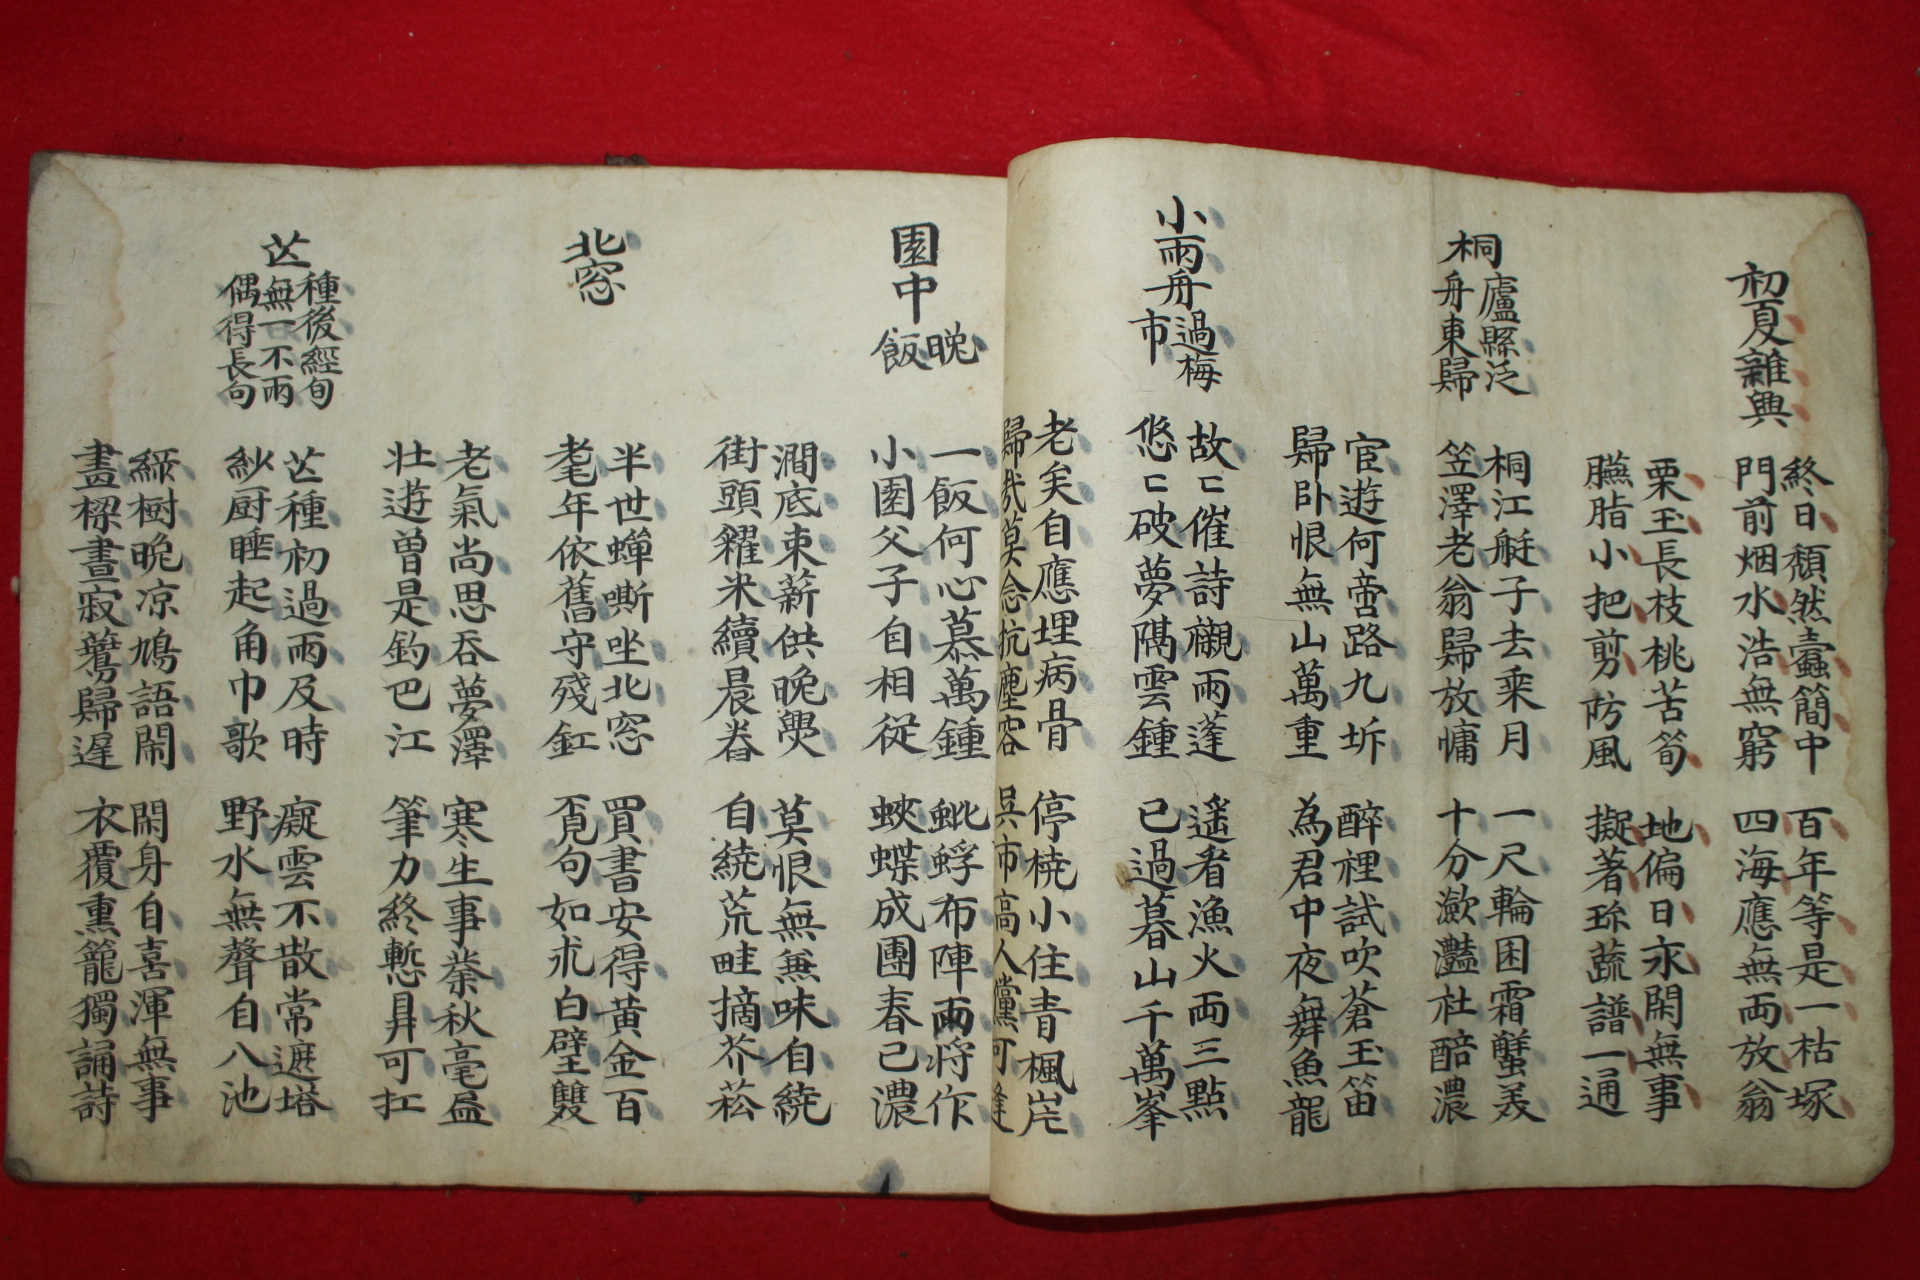 初夏雜興
終日頹然蠹簡中 百年等是一枯塚
門前烟水浩無窮 四海應無両放翁
栗玉長枝桃苦筍 地偏日永閑無事
臙脂小把剪防風 擬著珎蔬譜一通
桐廬縣泛舟東歸
桐江艇子去乘月 一尺輪囷霜蟹美
笠澤老翁歸放慵 十分瀲灩社醅濃
宦遊何啻路九坼 醉裡試吹蒼玉笛
歸卧恨無山萬重 為君中夜舞魚龍
小雨舟過梅市
故〻催詩襯雨蓬 遥看漁火両三點
悠〻破夢隔雲鍾 已過暮山千萬峯
老矣自應埋病骨 停橈小住青楓岸
歸哉莫念抗塵容 吳市高人儻可逢
園中晚飯
一飯何心慕萬鍾 蚍蜉布陣雨將作
小園父子自相從 蛺蝶成團春已濃
澗底束薪供晚爨 莫恨無無味自繞
街頭糴米續晨舂 自繞荒畦摘芥菘
北窓
半世蟬嘶坐北窓 買書安得黃金百
耄年依舊守殘釭 覔句如求白璧雙
老氣尚思吞夢澤 寒生事業秋毫盈
壮遊曾是釣巴江 筆力終慙鼎可扛
芒種後經旬無一不雨偶得長句
芒種初過雨及時 癡雲不散常遮塔
紗厨睡起角巾歌 野水無聲自入池
綠樹晚凉鳩語鬧 閑身自喜渾無事
畫樑晝寂鷰歸遲 衣覆熏籠獨誦詩